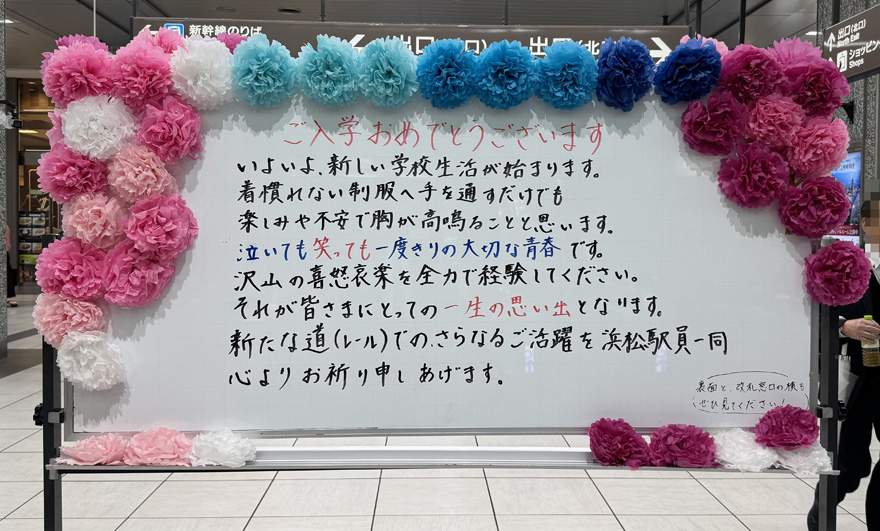 新幹線のりば
出口(
出口(北
出口(北口)
North Exit
ショッピン
Shops
ご入学おめでとうございます
いよいよ、新しい学校生活が始まります。
着慣れない制服へ手を通すだけでも
楽しみや不安で胸が高鳴ることと思います。
泣いても笑っても一度きりの大切な青春です。
沢山の喜怒哀楽を全力で経験してください。
それが皆さまにとっての一生の思い出となります。
新たな道(レール)での、さらなるご活躍を浜松駅員一同
心よりお祈り申しあげます。
裏面と、改札窓口の横も
ぜひ見てください!